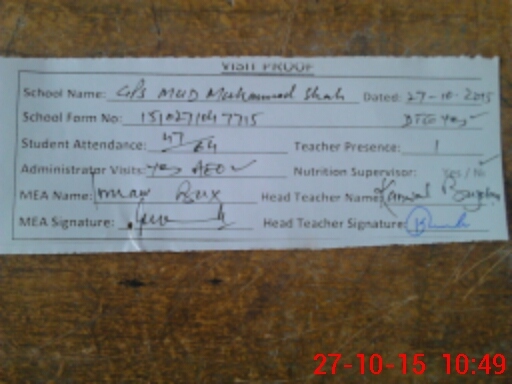 VISIT PROOF
School Name: GPS MUD Muhammad Shah Dated: 27-10-2015
School Form No: DTC Yes
Student Attendance: 47/64 Teacher Presence: 1
Administrator Visits: Yes AEO Nutrition Supervisor: Yes / No
MEA Name: Bux Head Teacher Name:
MEA Signature: Head Teacher Signature:
27-10-15 10:49